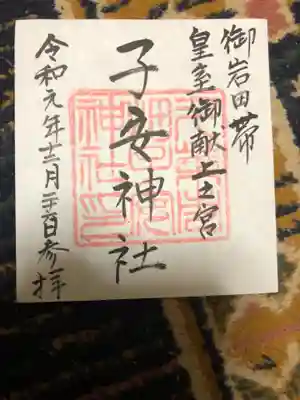 御岩田帯
皇室御献上之宮
子安神社
令和元年十二月二十六日参拝